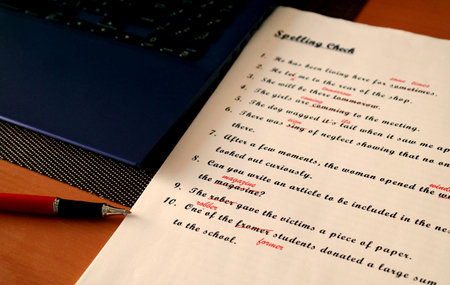 Spelling Check
some times
1. He has been living here for sometimes.
2. He let me to the rear of the shop.
tomorrow
3. She will be there tommorow.
coming
4. The girls are comming to the meeting.
its
5. The dog wagged it's tail when it saw me ap
sign
6. There was sing of neglect showing that no on
there.
windo
7. After a few moments, the woman opened the
looked out curiously.
8. Can you write an article to be included in the ne
magazine
the magasine?
9. The rober gave the victims a piece of paper.
robber
10. One of the fromer students donated a large sum
former
to the school.